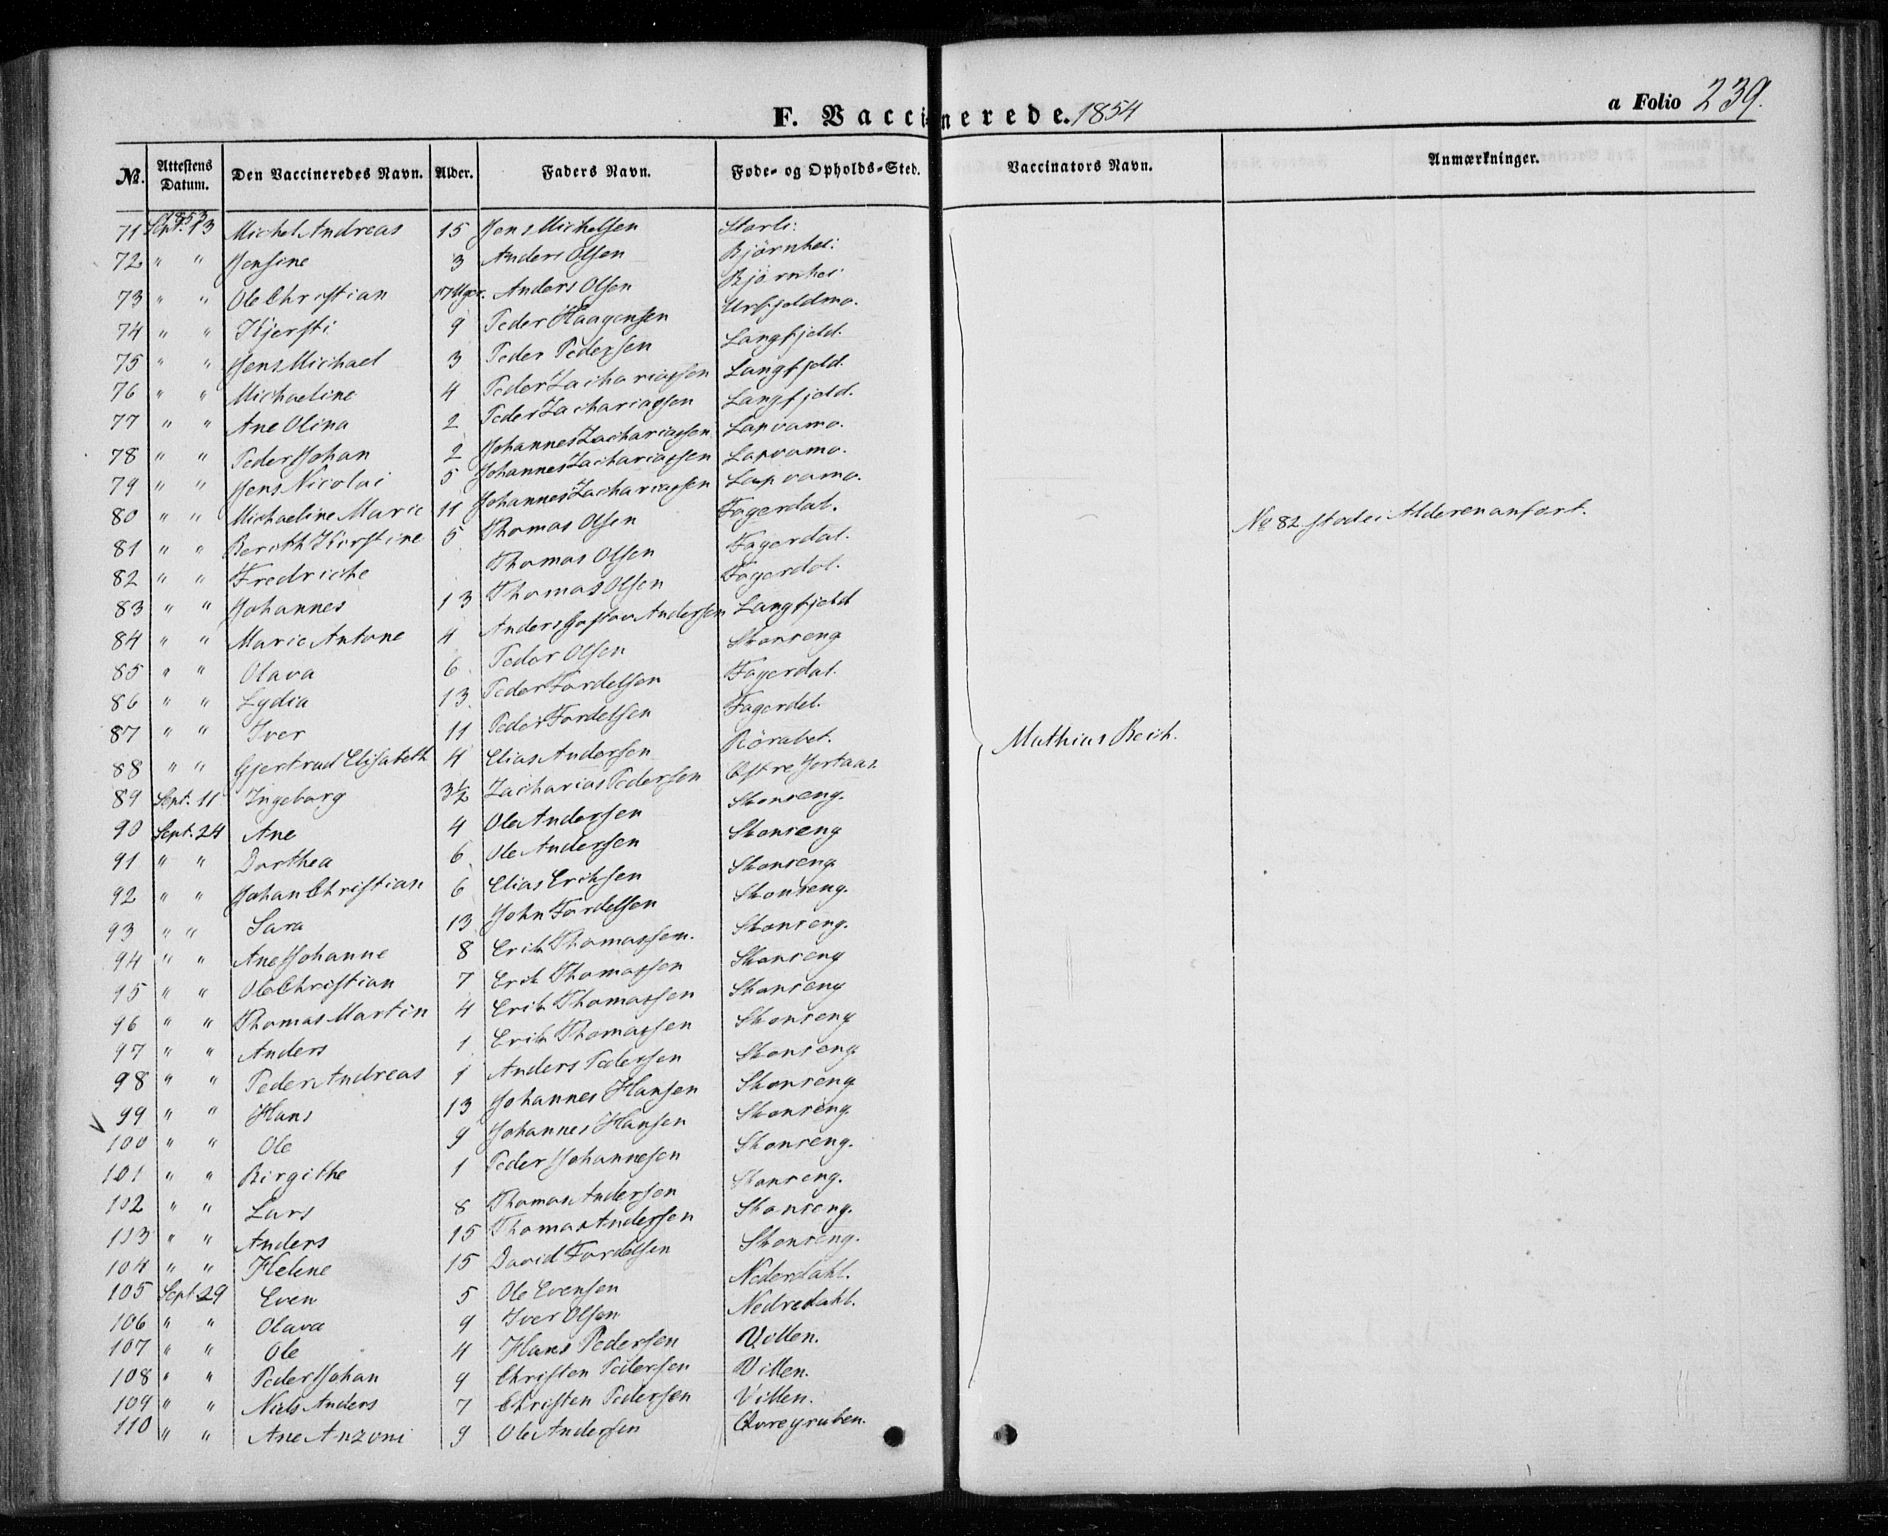 F. Vaccinerede. 1854
a Folio 239.
No. Attestens Datum. Den Vaccineredes Navn. Alder. Faders Navn. Føde- og Opholds-Sted. Vaccinators Navn. Anmærkninger.
1853
71 Sept. 13 Michel Andreas 15 Jens Michelsen
72 " " Jensine 3 Anders Olsen Bjørnhei:
73 " " Ole Christian 17 Uger. Anders Olsen Bjørnhei:
74 " " Kjersti 9 Peder Haagensen Urfjeldmo.
75 " " Jens Michael 3 Peder Pedersen Langfjeld.
76 " " Michaeline 4 Peder Zachariassen Langfjeld.
77 " " Ane Olina 2 Peder Zachariassen Langfjeld.
78 " " Peder Johan 2 Johannes Zachariassen Lapvamo.
79 " " Jens Nicolai 5 Johannes Zachariassen Lapvamo.
80 " " Michaeline Marie 11 Johannes Zachariassen Lapvamo.
81 " " Berith Kirstine 5 Thomas Olsen Fagerdal.
82 " " Fredriche Thomas Olsen Fagerdal. No 82 Alderen anført.
83 " " Johannes 13 Thomas Olsen Fagerdal.
84 " " Marie Antone 4 Anders Gustav Andersen Langfjeld
85 " " Olava 6 Peder Olsen Skonseng
86 " " Lydia 13 Peder Fordelsen Fagerdal.
87 " " Iver 11 Peder Fordelsen Fagerdal.
88 " " Gjertrud Elisabeth 4 Elias Andersen Mathias Beich.
89 Sept. 11 Ingeborg 3½ Zacharias Pedersen
90 Sept. 24 Ane 4 Ole Andersen Skonseng.
91 " " Dorthea 6 Ole Andersen Skonseng
92 " " Johan Christian 6 Elias Eriksen Skonseng
93 " " Sara 13 John Fordelsen Skonseng.
94 " " Ane Johanne 8 Erik Thomassen. Skonseng.
95 " " Ole Christian 7 Erik Thomassen Skonseng
96 " " Thomas Martin 4 Erik Thomassen Skonseng
97 " " Anders 1 Erik Thomassen Skonseng
98 " " Peder Andreas 1 Anders Pedersen Skonseng
99 " " Hans 13 Johannes Hansen Skonseng
100 " " Ole 9 Johannes Hansen Skonseng
101 " " Birgithe 1 Peder Johannesen Skonseng.
102 " " Lars 8 Thomas Andersen Skonseng.
103 " " Anders 15 Thomas Andersen Skonseng.
104 " " Helene 15 David Fordelsen Skonseng.
105 Sept. 29 Even 5 Ole Evensen Nederdahl.
106 " " Olava 9 Iver Olsen Nedredahl.
107 " " Ole 4 Hans Pedersen Villen.
108 " " Peder Johan 9 Christen Pedersen Villen.
109 " " Niels Anders 7 Christen Pedersen Villen.
110 " " Ane Anzoni 9 Ole Andersen